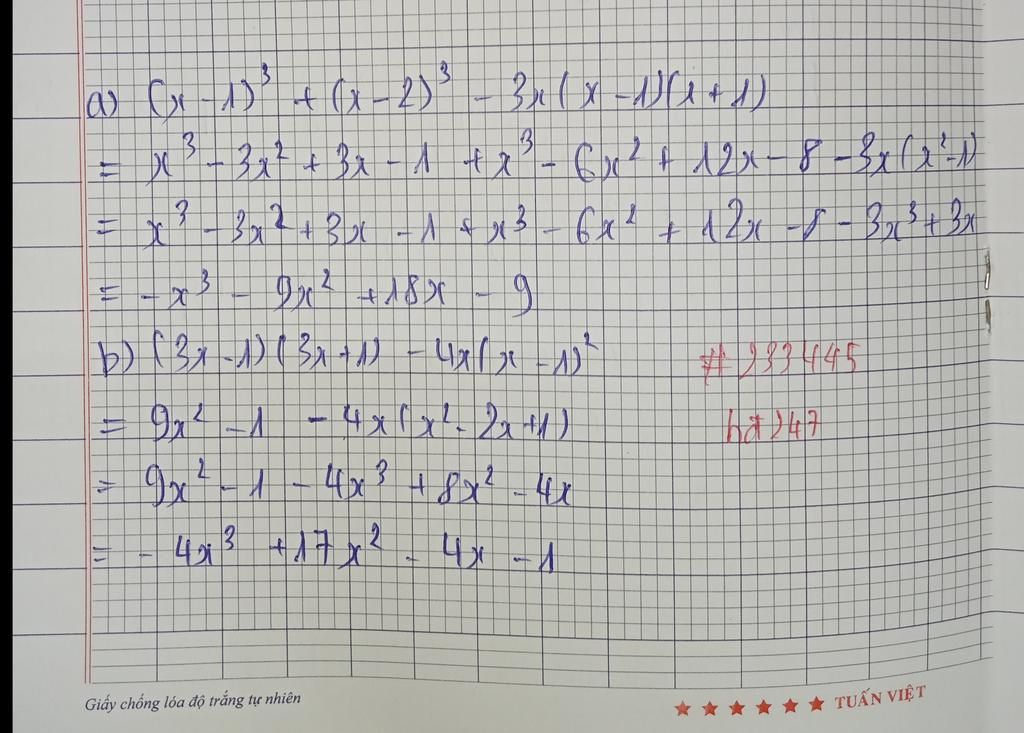 a) (x - 1)³ + (x - 2)³ - 3x(x - 1)(x + 1)
= x³ - 3x² + 3x - 1 + x³ - 6x² + 12x - 8 - 3x(x² - 1)
= x³ - 3x² + 3x - 1 + x³ - 6x² + 12x - 8 - 3x³ + 3x
= - x³ - 9x² + 18x - 9
b) (3x - 1)(3x + 1) - 4x(x - 1)²
# 233445
= 9x² - 1 - 4x(x² - 2x + 1)
= 9x² - 1 - 4x³ + 8x² - 4x
= - 4x³ + 17x² - 4x - 1
Giấy chống lóa độ trắng tự nhiên
TUẤN VIỆT